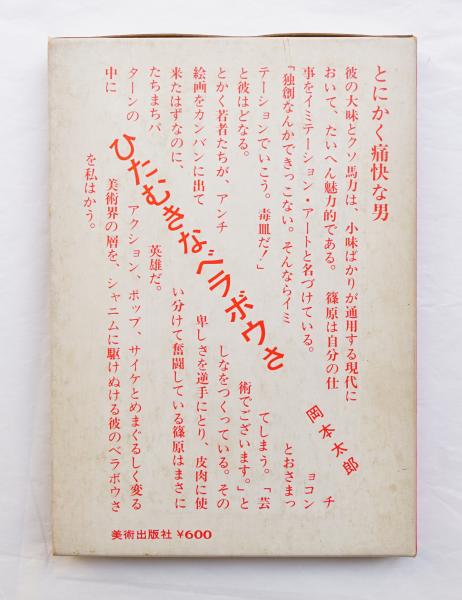 とにかく痛快な男
彼の大味とクソ馬力は、小味ばかりが通用する現代に
おいて、たいへん魅力的である。 篠原は自分の仕
事をイミテーション・アートと名づけている。
「独創なんかできっこない。そんならイミ
テーションでいこう。毒皿だ！」
と彼はどなる。
とかく若者たちが、アンチ
絵画をカンバンに出て
来たはずなのに、
たちまちパ
ターンの
中に
ひたむきなベラボウさ
岡本太郎
チ
ョコン
とおさまっ
てしまう。「芸
術でございます。」と
しなをつくっている。その
卑しさを逆手にとり、皮肉に使
い分けて奮闘している篠原はまさに
英雄だ。
アクション、ポップ、サイケとめまぐるしく変る
美術界の層を、シャニムに駆けぬける彼のベラボウさ
を私はかう。
美術出版社 ¥600